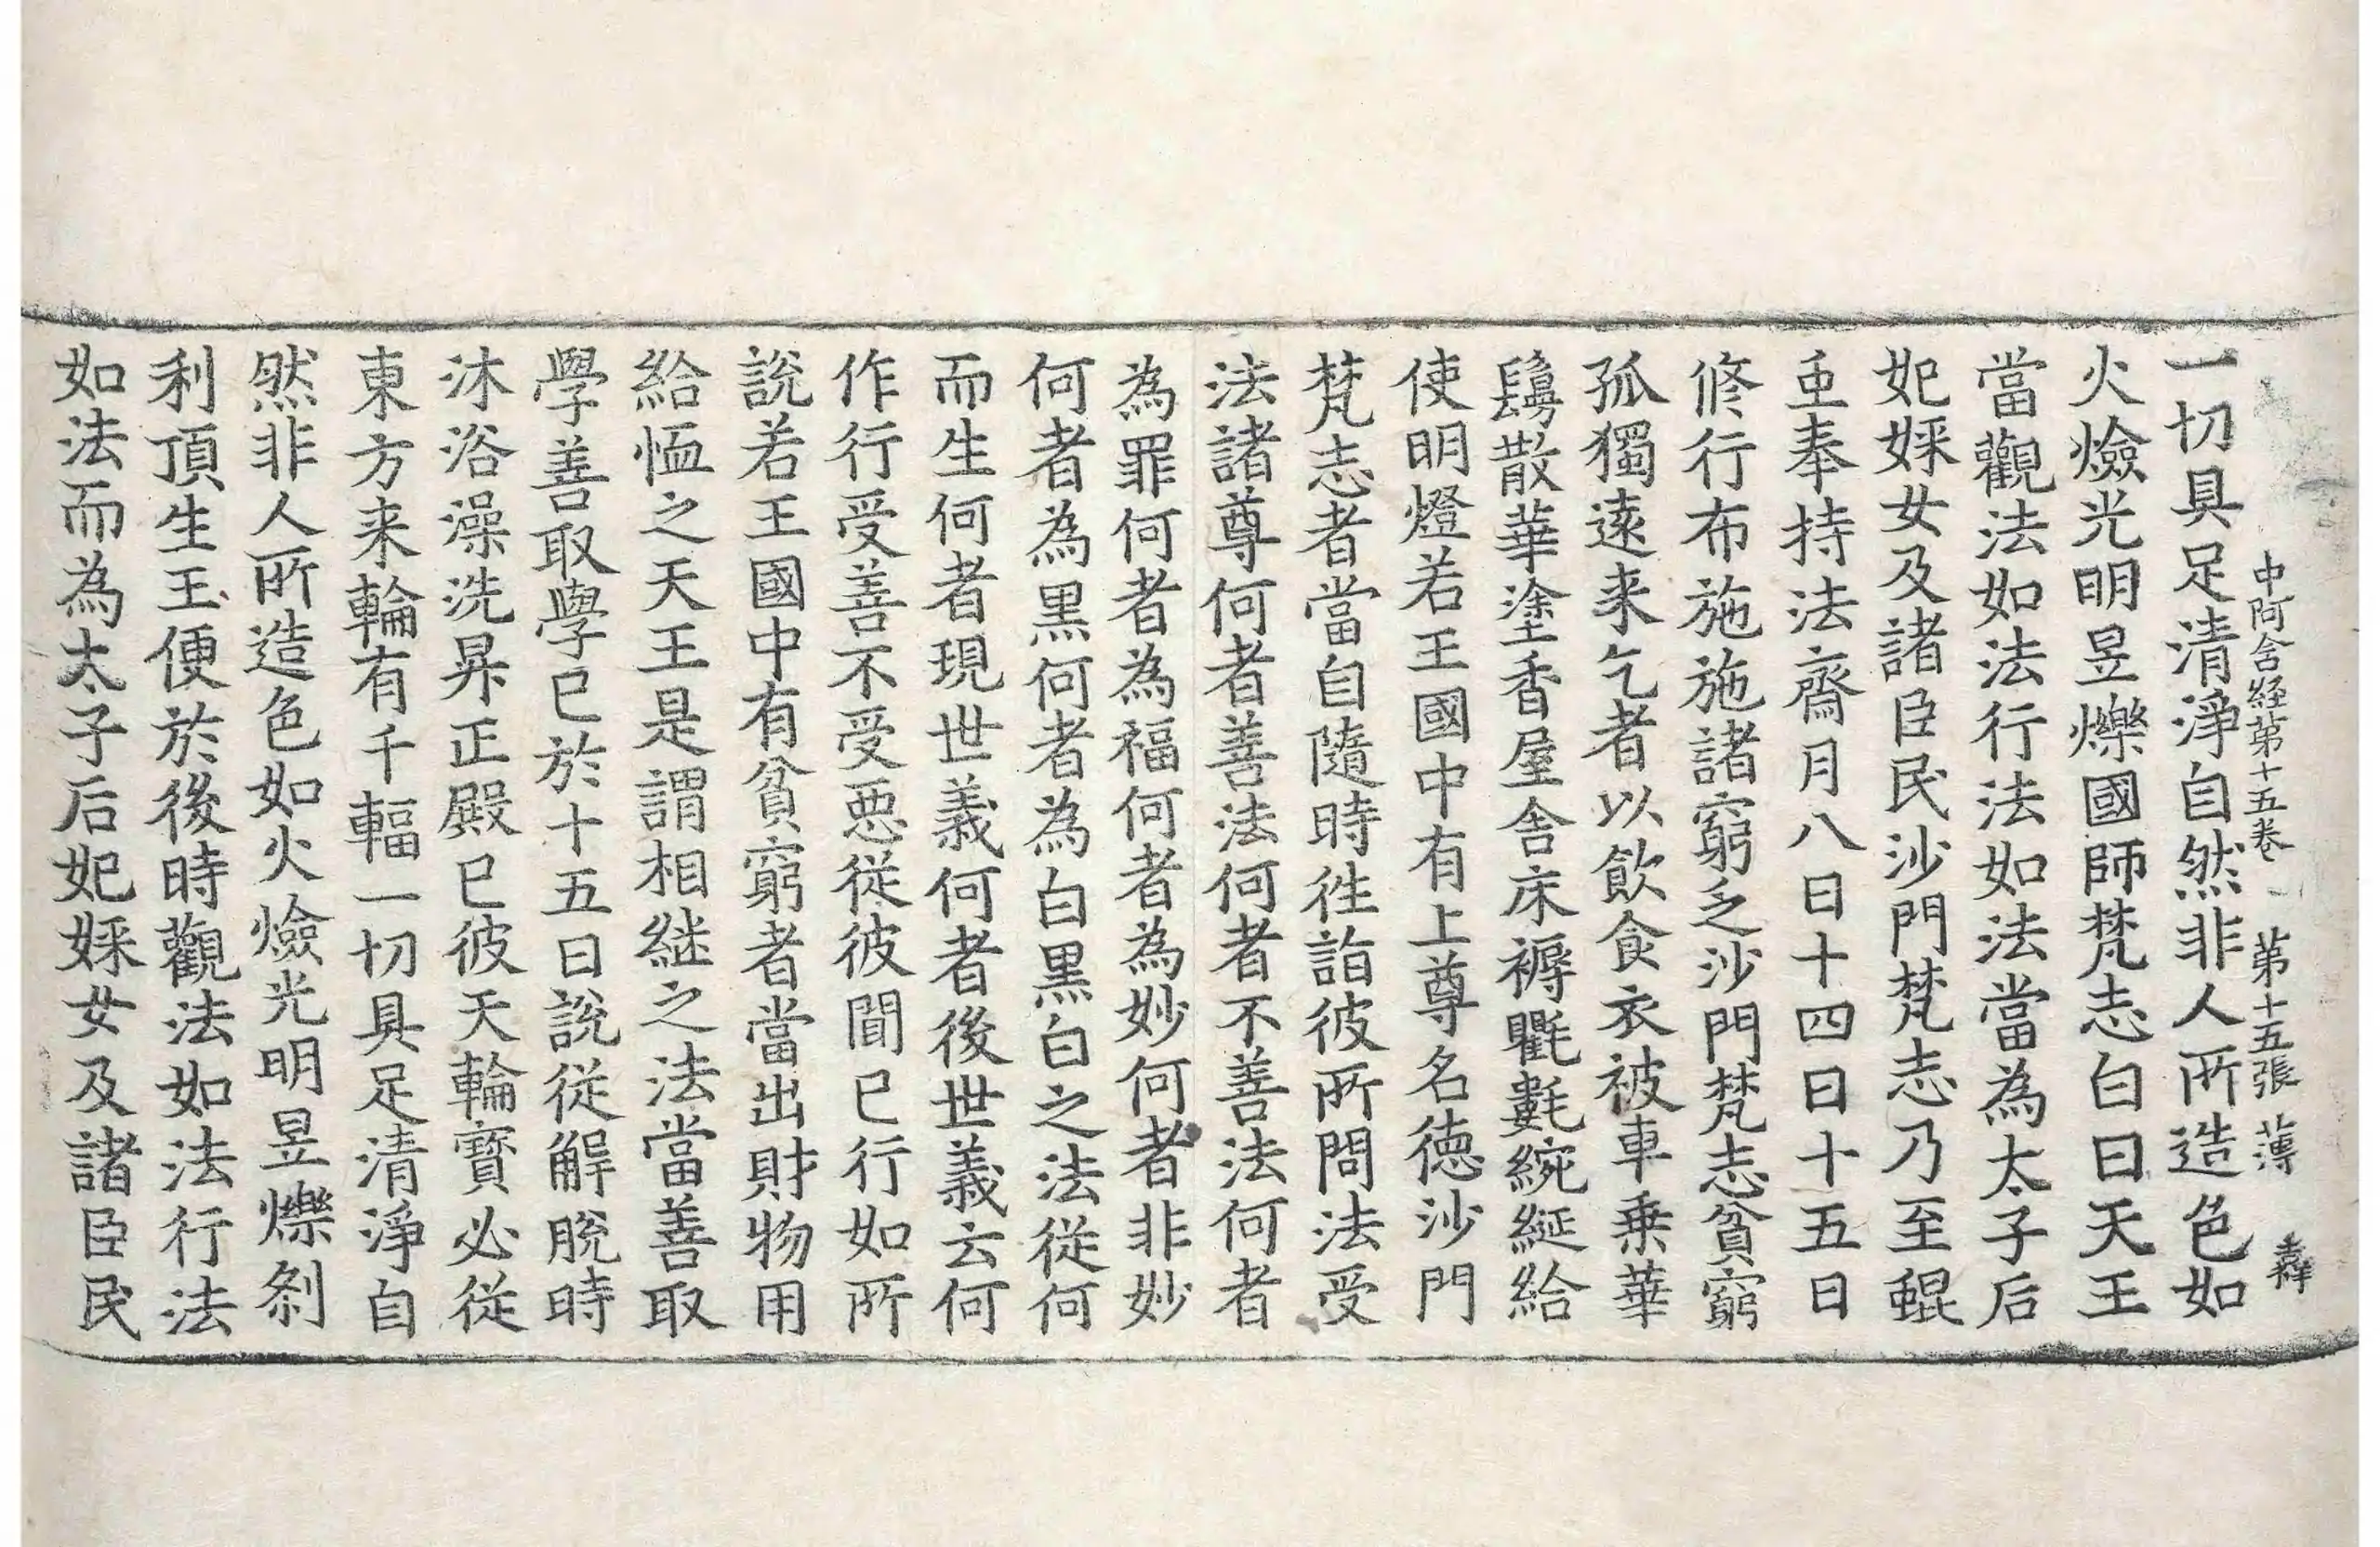 中阿含経第十五卷 第十五張 薄
一切具足清淨自然非人所造色如
火燄光明昱爍國師梵志白曰天王
當觀法如法行法如法當為太子后
妃婇女及諸臣民沙門梵志乃至蜫
重奉持法齋月八日十四日十五日
修行布施施諸窮乏沙門梵志貧窮
孤獨遠来乞者以飲食衣被車乗華
鬘散華塗香屋舍床褥氍㲣綩綖給
使明燈若王國中有上尊名德沙門
梵志者當自隨時徃詣彼所問法受
法諸尊何者善法何者不善法何者
為罪何者為福何者為妙何者非妙
何者為黒何者為白黒白之法從何
而生何者現世義何者後世義云何
作行受善不受悪從彼聞已行如所
說若王國中有貧窮者當出財物用
給恤之天王是謂相継之法當善取
學善取學已於十五日說從解脫時
沐浴澡洗昇正殿已彼天輪寳必從
東方来輪有千輻一切具足清淨自
然非人所造色如火燄光明昱爍剎
利頂生王便於後時觀法如法行法
如法而為太子后妃婇女及諸臣民